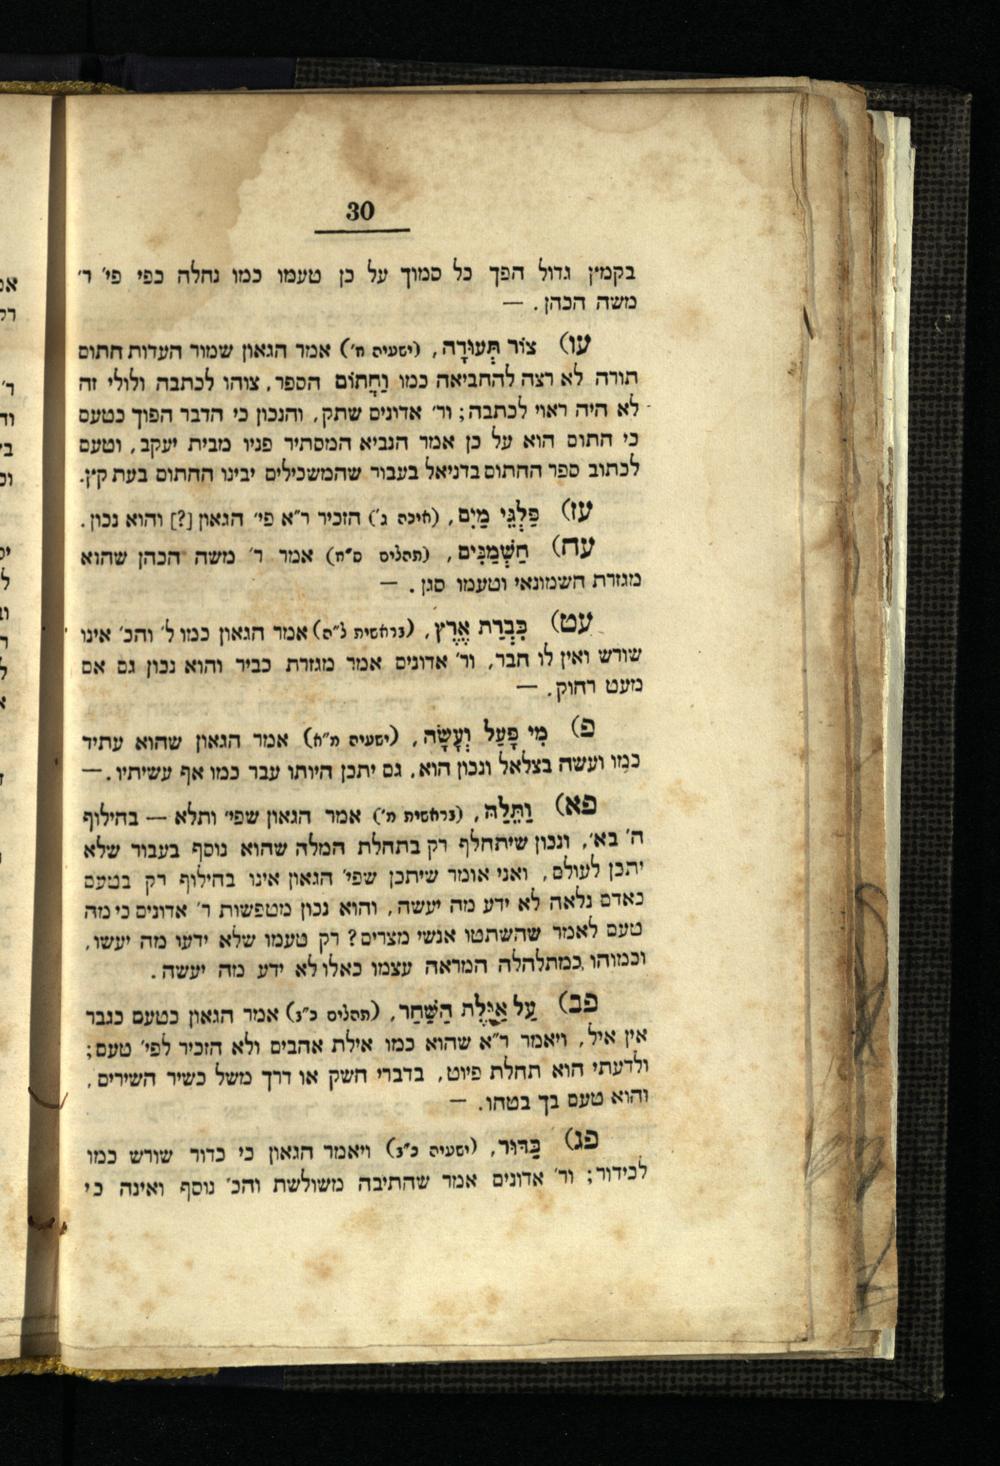 30
בקמץ גדול הפך כל סמוך על כן טעמו כמו נחלה כפי פי׳ ר׳
משה הכהן. —
עו) צוֹר תְּעוּדָה, (ישעיה ח׳) אמר הגאון שמור העדות חתום
תורה לא רצה להחביאה כמו וַחֲתוֹם הספר, צוהו לכתבה ולולי זה
לא היה ראוי לכתבה; ור׳ אדונים שתק, והנכון כי הדבר הפוך כטעם
כי התום הוא על כן אמר הנביא המסתיר פניו מבית יעקב, וטעם
לכתוב ספר החתום בדניאל בעבור שהמשכילים יבינו החתום בעת קץ.
עז) פַּלְגֵי מַיִם, (איכה ג׳) הזכיר ר״א פי׳ הגאון [?] והוא נכון.
עח) חַשְׁמַנִּים, (תהלים ס״ח) אמר ר׳ משה הכהן שהוא
מגזרת חשמונאי וטעמו סגן. —
עט) כִּבְרַת אֶרֶץ, (בראשית ל״ה) אמר הגאון כמו ל׳ והכ׳ אינו
שורש ואין לו חבר, ור׳ אדונים אמר מגזרת כביר והוא נכון גם אם
מעט רחוק. —
פ) מִי פָּעַל וְעָשָׂה, (ישעיה מ״א) אמר הגאון שהוא עתיד
כמו ועשה בצלאל ונכון הוא, גם יתכן היותו עבר כמו אף עשיתיו. —
פא) וַתֵּלַהּ, (בראשית מ׳) אמר הגאון שפי׳ ותלא — בחילוף
ה׳ בא׳, ונכון שיתחלף רק בתחלת המלה שהוא נוסף בעבור שלא
יתכן לעולם, ואני אומר שיתכן שפי׳ הגאון אינו בחילוף רק בטעם
כאדם נלאה לא ידע מה יעשה, והוא נכון מטפשות ר׳ אדונים כי מה
טעם לאמר שהשתטו אנשי מצרים? רק טעמו שלא ידעו מה יעשו,
וכמוהו כמתלהלה המראה עצמו כאלו לא ידע מה יעשה.
פב) עַל אַיֶּלֶת הַשַּׁחַר, (תהלים כ״ב) אמר הגאון כטעם כגבר
אין איל, ויאמר ר״א שהוא כמו אילת אהבים ולא הזכיר לפי׳ טעם;
ולדעתי הוא תחלת פיוט, בדברי חשק או דרך משל כשיר השירים,
והוא טעם בך בטחו. —
פג) כַּדּוּר, (ישעיה כ״ב) ויאמר הגאון כי כדור שורש כמו
לכידור; ור׳ אדונים אמר שהתיבה משולשת והכ׳ נוסף ואינה כי